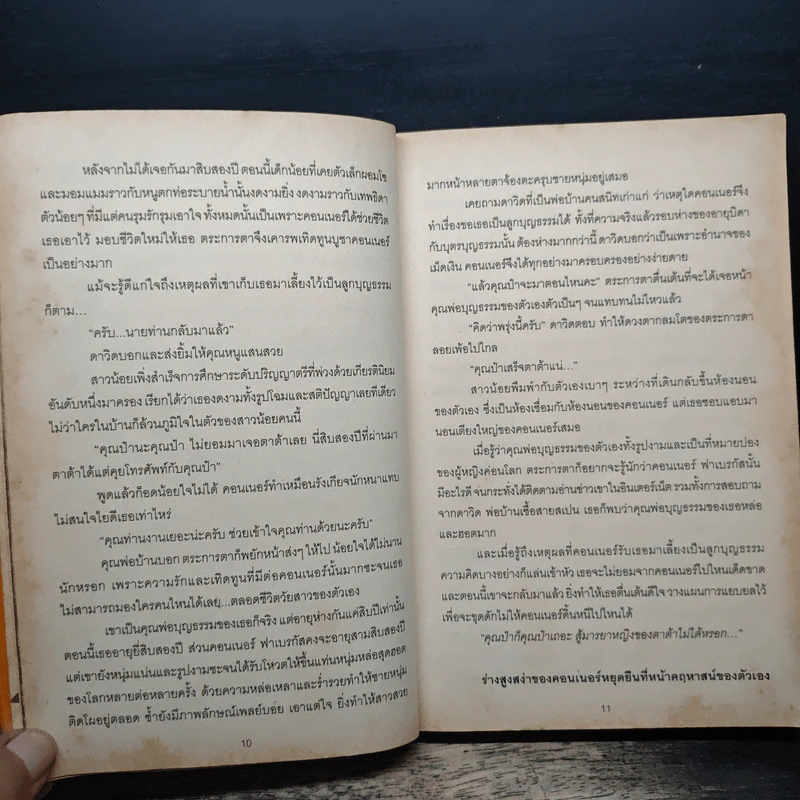 หลังจากไม่ได้เจอกันมาสิบสองปี ตอนนี้เด็กน้อยที่เคยตัวเล็กผอมโซ
และมอมแมมราวกับหนูตกท่อระบายน้ำนั้นงดงามยิ่ง งดงามราวกับเทพธิดา
ตัวน้อยๆ ที่มีแต่คนรุมรักรุมเอาใจ ทั้งหมดนั้นเป็นเพราะคอนเนอร์ได้ช่วยชีวิต
เธอเอาไว้ มอบชีวิตใหม่ให้เธอ ตระการตาจึงเคารพเทิดทูนบูชาคอนเนอร์
เป็นอย่างมาก
แม้จะรู้ดีแก่ใจถึงเหตุผลที่เขาเก็บเธอมาเลี้ยงไว้เป็นลูกบุญธรรม
ก็ตาม...
“ครับ...นายท่านกลับมาแล้ว”
ดาวิดบอกและส่งยิ้มให้คุณหนูแสนสวย
สาวน้อยเพิ่งสำเร็จการศึกษาระดับปริญญาตรีที่พ่วงด้วยเกียรตินิยม
อันดับหนึ่งมาครอง เรียกได้ว่าเธองดงามทั้งรูปโฉมและสติปัญญาเลยทีเดียว
ไม่ว่าใครในบ้านก็ล้วนภูมิใจในตัวของสาวน้อยคนนี้
“คุณป๋านะคุณป๋า ไม่ยอมมาเจอตาด้าเลย นี่สิบสองปีที่ผ่านมา
ตาด้าได้แต่คุยโทรศัพท์กับคุณป๋า”
พูดแล้วก็อดน้อยใจไม่ได้ คอนเนอร์ทำเหมือนรังเกียจนักหนาแทบ
ไม่สนใจไยดีเธอเท่าไหร่
“คุณท่านงานเยอะน่ะครับ ช่วยเข้าใจคุณท่านด้วยนะครับ”
คุณพ่อบ้านบอก ตระการตาก็พยักหน้าส่งๆ ให้ไป น้อยใจได้ไม่นาน
นักหรอก เพราะความรักและเทิดทูนที่มีต่อคอนเนอร์นั้นมากซะจนเธอ
ไม่สามารถมองใครคนไหนได้เลย...ตลอดชีวิตวัยสาวของตัวเอง
เขาเป็นคุณพ่อบุญธรรมของเธอก็จริง แต่อายุห่างกันแค่สิบปีเท่านั้น
ตอนนี้เธออายุยี่สิบสองปี ส่วนคอนเนอร์ ฟาเบรกัสคงจะอายุสามสิบสองปี
แต่เขายังหนุ่มแน่นและรูปงามซะจนได้รับโหวตให้ขึ้นแท่นหนุ่มหล่อสุดฮอต
ของโลกหลายต่อหลายครั้ง ด้วยความหล่อเหลาและร่ำรวยทำให้ชายหนุ่ม
ติดโผอยู่ตลอด ซ้ำยังมีภาพลักษณ์เพลย์บอย เอาแต่ใจ ยิ่งทำให้สาวสวย
10
มากหน้าหลายตาจ้องตะครุบชายหนุ่มอยู่เสมอ
เคยถามดาวิดที่เป็นพ่อบ้านคนสนิทเก่าแก่ ว่าเหตุใดคอนเนอร์จึง
ทำเรื่องขอเธอเป็นลูกบุญธรรมได้ ทั้งที่ความจริงแล้วรอบห่างของอายุบิดา
กับบุตรบุญธรรมนั้น ต้องห่างมากกว่านี้ ดาวิดบอกว่าเป็นเพราะอำนาจของ
เม็ดเงิน คอนเนอร์จึงได้ทุกอย่างมาครอบครองอย่างง่ายดาย
“แล้วคุณป๋าจะมาตอนไหนคะ” ตระการตาตื่นเต้นที่จะได้เจอหน้า
คุณพ่อบุญธรรมของตัวเองตัวเป็นๆ จนแทบทนไม่ไหวแล้ว
“คิดว่าพรุ่งนี้ครับ” ดาวิดตอบ ทำให้ดวงตากลมโตของตระการตา
ลอยเพ้อไปไกล
“คุณป๋าเสร็จตาด้าแน่...”
สาวน้อยพึมพำกับตัวเองเบาๆ ระหว่างที่เดินกลับขึ้นห้องนอน
ของตัวเอง ซึ่งเป็นห้องเชื่อมกับห้องนอนของคอนเนอร์ แต่เธอชอบแอบมา
นอนเตียงใหญ่ของคอนเนอร์เสมอ
เมื่อรู้ว่าคุณพ่อบุญธรรมของตัวเองทั้งรูปงามและเป็นที่หมายปอง
ของผู้หญิงค่อนโลก ตระการตาก็อยากจะรู้นักว่าคอนเนอร์ ฟาเบรกัสนั้น
มีอะไรดี จนกระทั่งได้ติดตามอ่านข่าวเขาในอินเตอร์เน็ต รวมทั้งการสอบถาม
จากดาวิด พ่อบ้านเชื้อสายสเปน เธอก็พบว่าคุณพ่อบุญธรรมของเธอหล่อ
และฮอตมาก
และเมื่อรู้ถึงเหตุผลที่คอนเนอร์รับเธอมาเลี้ยงเป็นลูกบุญธรรม
ความคิดบางอย่างก็แล่นเข้าหัว เธอจะไม่ยอมจากคอนเนอร์ไปไหนเด็ดขาด
และตอนนี้เขาจะกลับมาแล้ว ยิ่งทำให้เธอตื่นเต้นดีใจ วางแผนการแยบยลไว้
เพื่อจะขุดดักไม่ให้คอนเนอร์ดิ้นหนีไปไหนได้
“คุณป๋าก็คุณป๋าเถอะ สู้มารยาหญิงของตาด้าไม่ได้หรอก...”
ร่างสูงสง่าของคอนเนอร์หยุดยืนที่หน้าคฤหาสน์ของตัวเอง
11